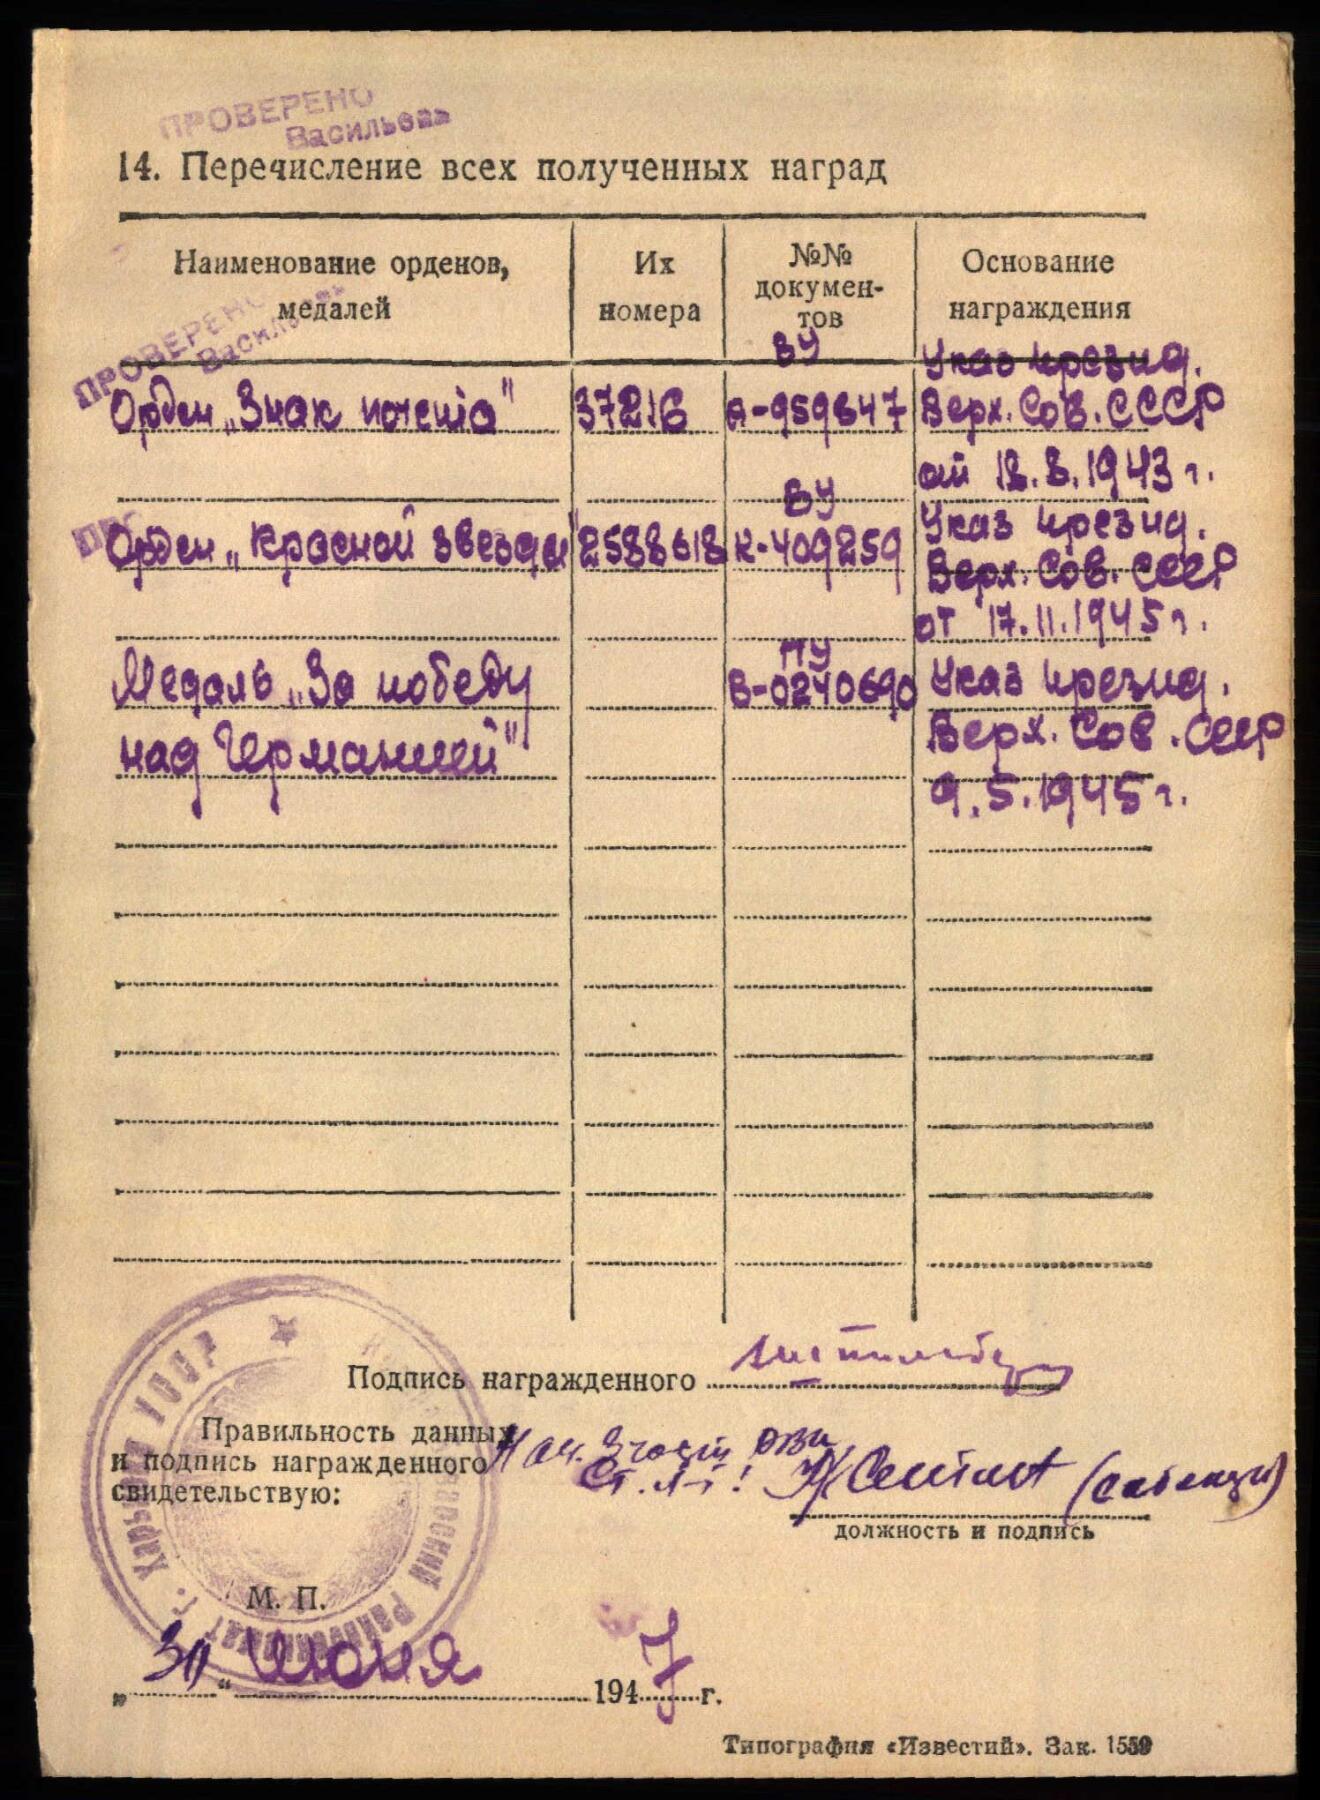 ПРОВЕРЕНО
Васильева
14. Перечисление всех полученных наград
Наименование орденов, медалей
Их номера
№№ докумен-
тов
Основание награждения
ПРОВЕРЕНО
Васильева
Орден „Знак почета"
37216
ВУ
А-959847
Указ през ид.
Верх. Сов. СССР
от 18.8.1943 г.
Орден „Красной звезды"
2588618
ВУ
К-409259
Указ презид.
Верх. Сов. СССР
от 17.11.1945 г.
Медаль „За победу
над Германией"
ПУ
В-0240690
Указ презид.
Верх. Сов. СССР
9.5.1945 г.
Подпись награжденного
Правильность данных
и подпись награжденного
свидетельствую:
Нач. 3 части
Ст. л-т
должность и подпись
М. П.
„30" июня 1947 г.
УССР
г. Харьков
Райвоенкомат
Типография «Известий». Зак. 1559